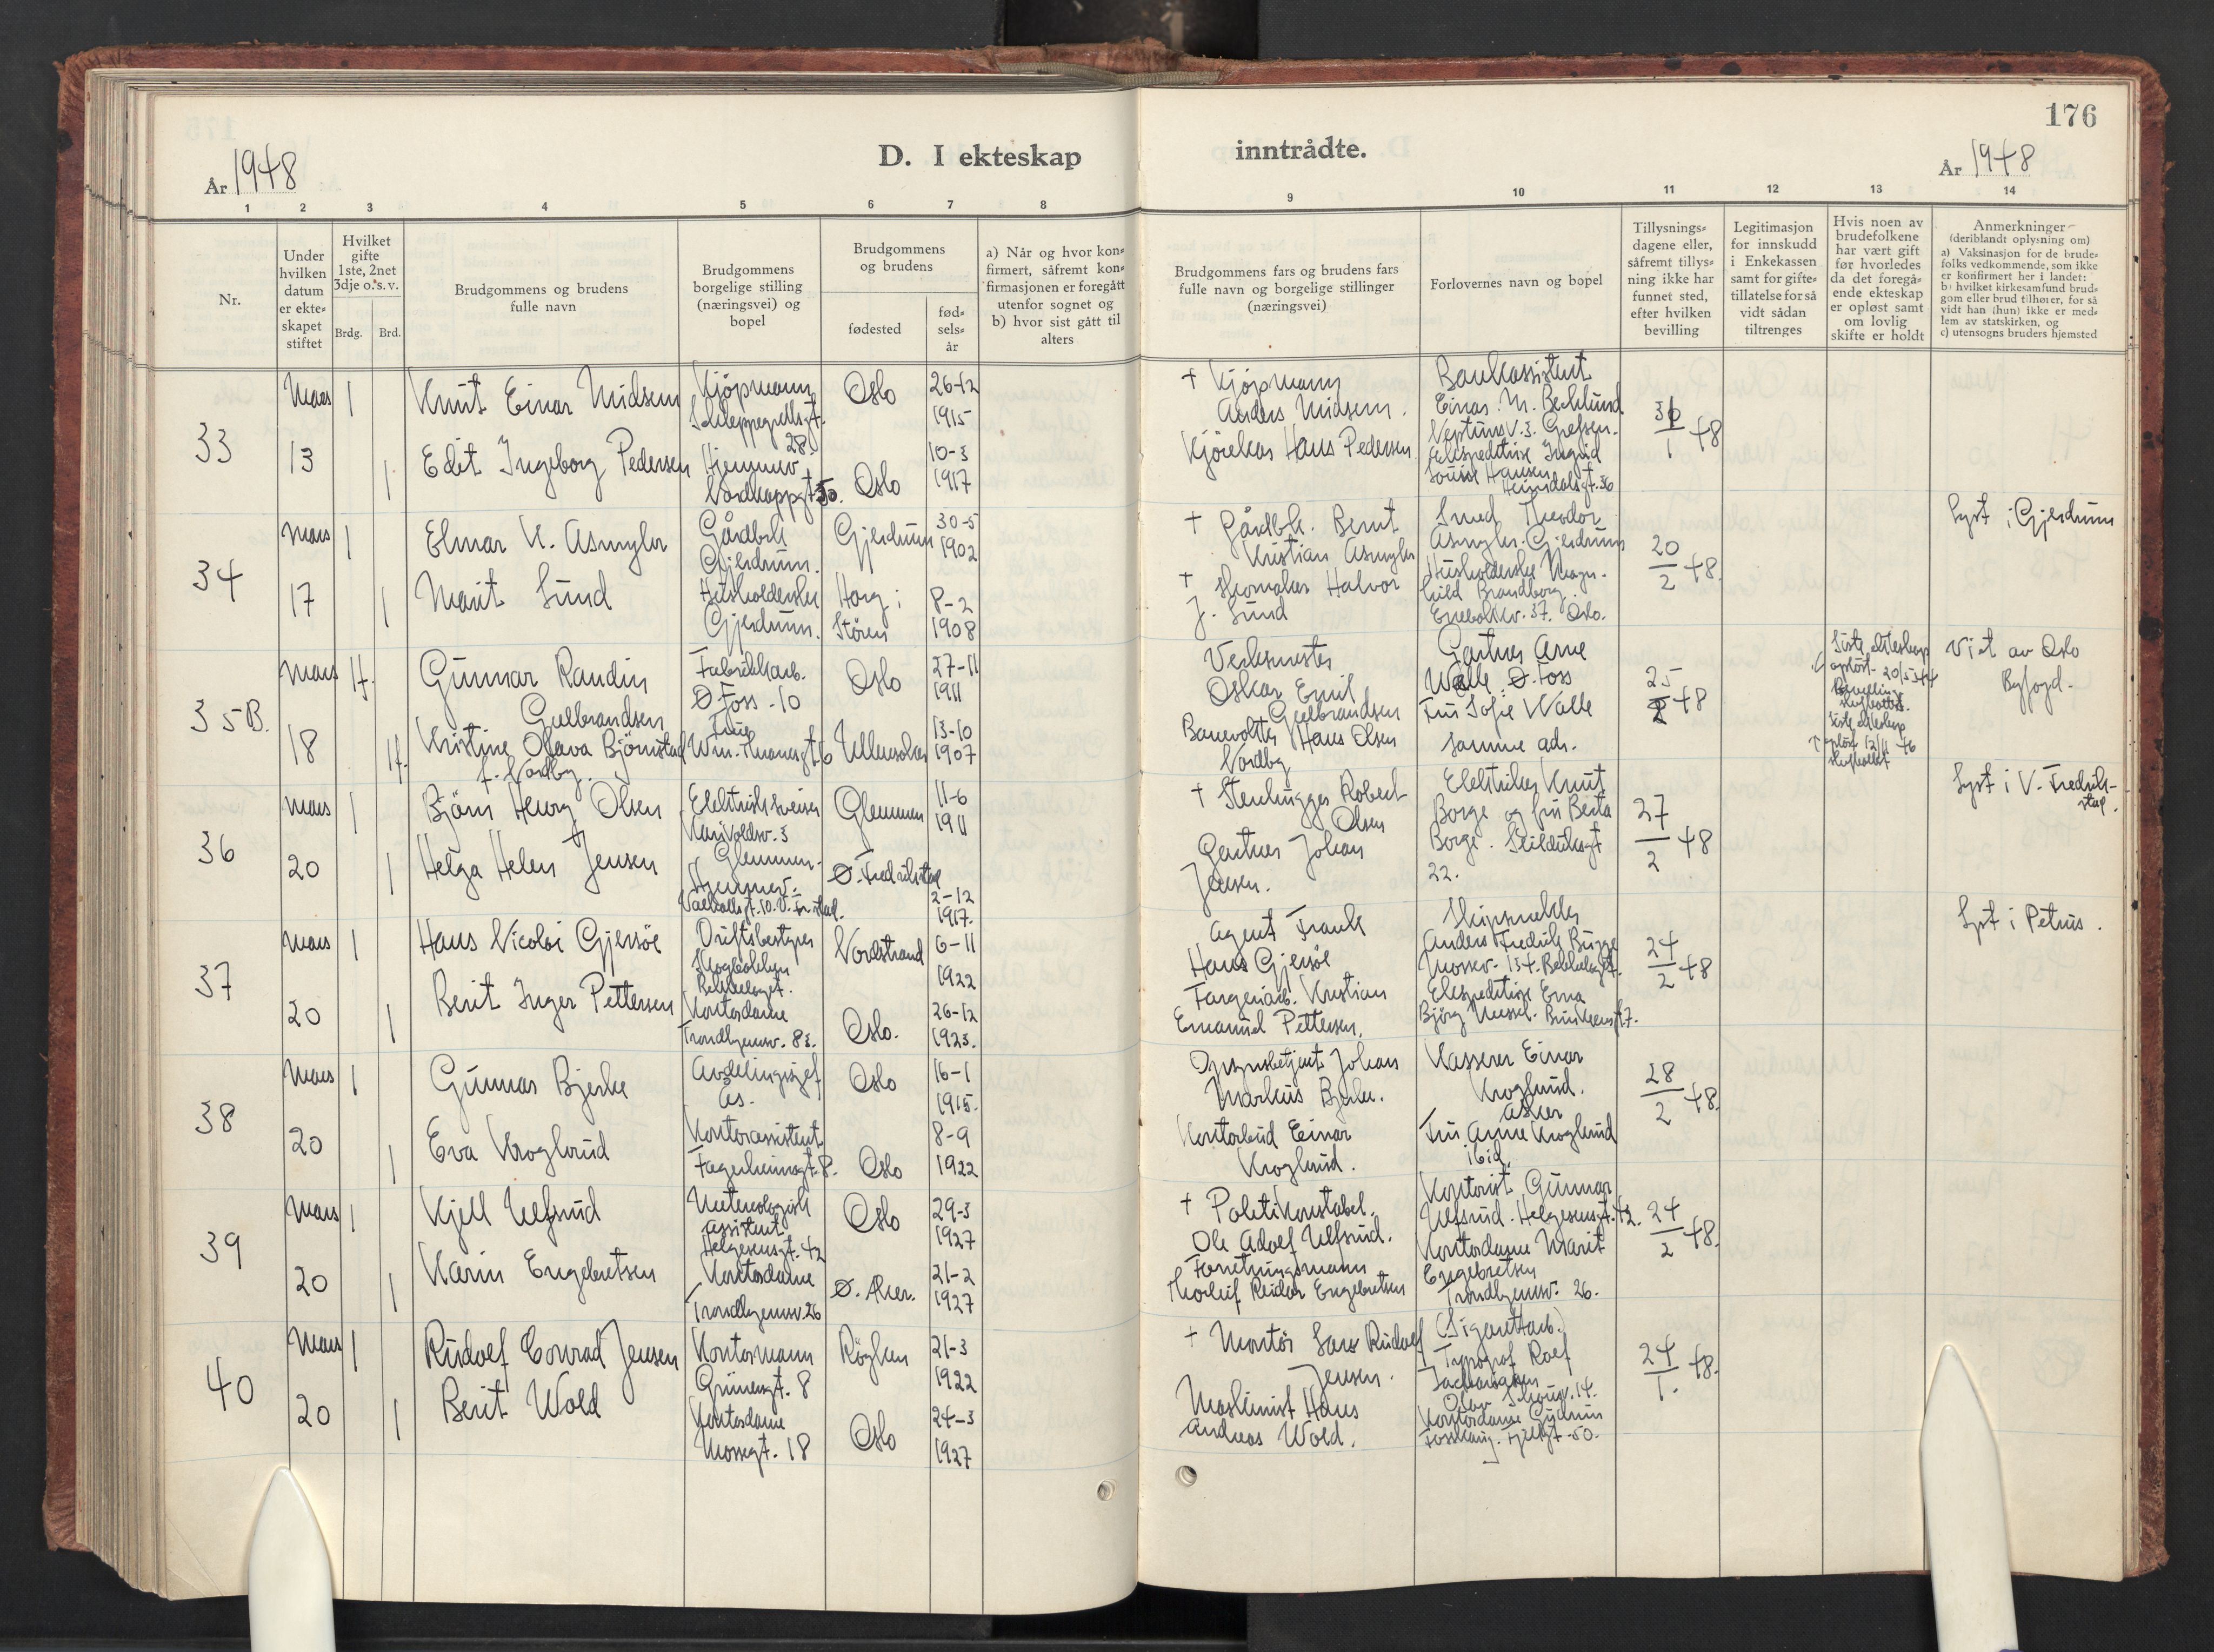 176
D. I ekteskap inntrådte.
År 1948
År 1948
1 2 3 4 5 6 7 8 9 10 11 12 13 14
Nr.
Under hvilken datum er ekte-skapet stiftet
Hvilket gifte 1ste, 2net 3dje o. s. v.
Brdg. Brd.
Brudgommens og brudens fulle navn
Brudgommens borgelige stilling (næringsvei) og bopel
Brudgommens og brudens
fødested
fød-sels-år
a) Når og hvor kon-firmert, såfremt kon-firmasjonen er foregått utenfor sognet og b) hvor sist gått til alters
Brudgommens fars og brudens fars fulle navn og borgelige stillinger (næringsvei)
Forlovernes navn og bopel
Tillysnings-dagene eller, såfremt tillys-ning ikke har funnet sted, efter hvilken bevilling
Legitimasjon for innskudd i Enkekassen samt for gifte-tillatelse for så vidt sådan tiltrenges
Hvis noen av brudefolkene har vært gift før hvorledes da det foregå-ende ekteskap er opløst samt om lovlig skifte er holdt
Anmerkninger (deriblandt oplysning om) a) Vaksinasjon for de brude-folks vedkommende, som ikke er konfirmert her i landet; b) hvilket kirkesamfund brud-gom eller brud tilhører, for så vidt han (hun) ikke er med-lem av statskirken, og c) utensogns bruders hjemsted
33
Mars 13
1
Knut Einar Midsem
Kjøpmann
Schleppegrellsgt. 28.
Oslo
26-12 1915
1
Edit Ingeborg Pedersen
Hjemmev.
Nordkappgt. 50.
Oslo
10-3 1917
+ Kjøpmann Anders Midsem.
Kjørekar Hans Pedersen
Bankassistent
Einar M. Becklund
Neptunv. 3. Grefsen.
Ekspeditrise Ingrid
Louise Hansen
Heimdalsgt. 36
1 48
34
Mars 17
1
Elmar K. Asmyhr
Gårdbr.
Gjerdrum.
Gjerdrum
30-5 1902
1
Marit Sund
Husholderske
Gjerdrum.
Horg i Støren
8-2 1908
+ Gårdbr. Bernt Kristian Asmyhr
+ Skomaker Halvor J. Sund
Smed Theodor
Asmyhr. Gjerdrum
Husholderske Magn-
hild Brandborg.
Enebakkv. 37. Oslo.
20/2 48.
Lyst i Gjerdrum
35 B.
Mars 18
1f.
Gunnar Randin Gulbrandsen
Fabrikkarb.
Ø Foss - 10
Oslo
27-11 1911
1f.
Kristine Olava Bjørnstad
f. Nordby.
Frue
Wm. Thranesgt. 6
Ullensaker
13-10 1907
Verksmester
Oskar Emil Gulbrandsen
Banevokter Hans Olsen
Nordby
Gartner Arne
Walle Ø. Foss
Fru Sofie Walle
samme adr.
25/2 48
Siste ekteskap
opløst 20/5 44
Bevilling
Siste ekteskap
opløst 12/11 46
Viet av Oslo
Byfogd.
36
Mars 20
1
Bjørn Henry Olsen
Elektrisk sveiser
Karivoldsv. 3
Glemmen.
Glemmen
11-6 1911
1
Helga Helen Jensen
Hjemmev.
Ø. Fredrikstad
2-12 1917.
+ Stenhugger Robert Olsen
Gartner Johan Jensen.
Elektriker Knut
Borge og fru Berta
Borge.
22.
27/2 48
Lyst i V. Fredrik-
stad.
37
Mars 20
1
Hans Nicolai Gjersøe
Driftsbestyrer
Skogbakken
Bekkelaget.
Nordstrand
6-11 1922
1
Berit Inger Pettersen
Kontordame
Trondhjemsv. 83.
Oslo.
26-12 1923.
Agent Frank Hans Gjersøe
Fargeriarb. Kristian Emanuel Pettersen.
Skipsmekler
Anders Fredrik Bugge
Mossev. 134. Bekkelaget.
Ekspeditrise Erna
24/2 48
Lyst i Petrus.
38
Mars 20
1
Gunnar Bjerke
Avdelingssjef
Ås.
Oslo
16-1 1915.
1
Eva Kroglund
Kontorassistent
Fagerheimsgt. 8.
Oslo
8-9 1922
Opsynsbetjent Johan
Markus Bjerke.
Kontorbud Einar
Kroglund.
Kasserer Einar
Kroglund.
Asker
Fru Anne Kroglund
ibid.
28/2 48.
39
Mars 20
1
Kjell Ulfsrud
Meteorologisk assistent
Helgesensgt. 42
Oslo
29-3 1927
1
Karin Engebretsen
Kontordame
Trondhjemsv. 26
Ø. Aker.
21-2 1927
+ Politikonstabel.
Ole Adolf Ulfsrud.
Forretningsmann
Thorleif Reidar Engebretsen
Kontorist Gunnar
Ulfsrud. Helgesensgt. 42.
Kontordame Marit
Engebretsen
Trondhjemsv. 26.
24/2 48.
40
Mars 20
1
Rudolf Conrad Jensen
Kontormann
Grünersgt. 8
Røyken
21-3 1922
1
Berit Wold
Kontordame
Mossegt. 18
Oslo
24-3 1927
+ Montør Lars Rudolf
Jensen.
Maskinist Hans
Andreas Wold.
(Sigarettarb.)
Typograf Rolf
Zachariassen
Olav Schousv. 14.
Kontordame Gudrun
24/1. 48.